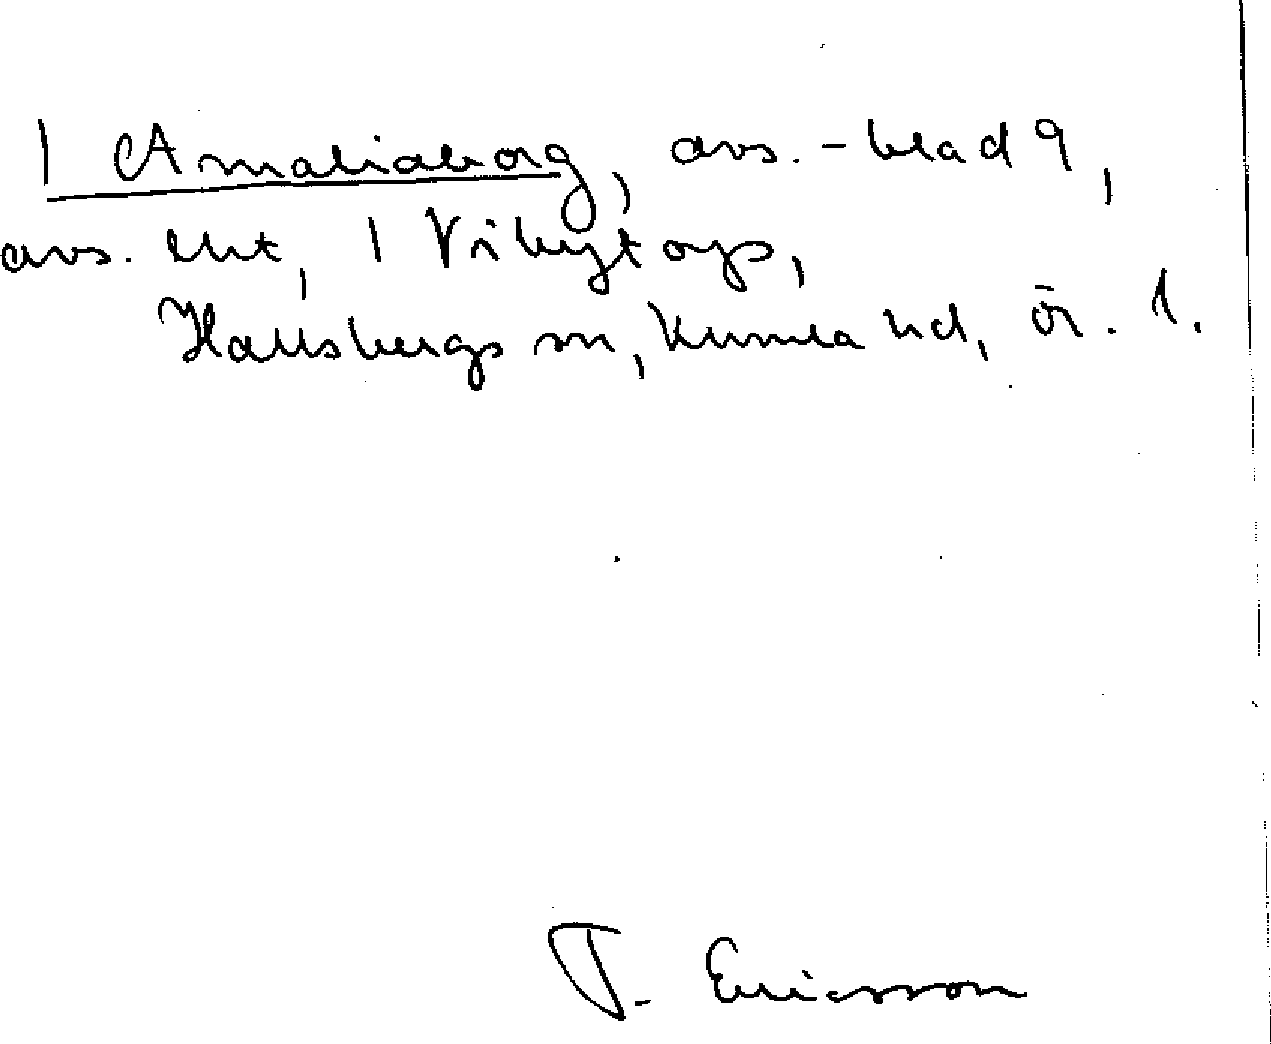 1 Amaliaborg, avs.-blad 9,
avs. enl, 1 Vibytorp,
Hallsbergs sn, Kumla hd, Ör. l.
T. Ericsson